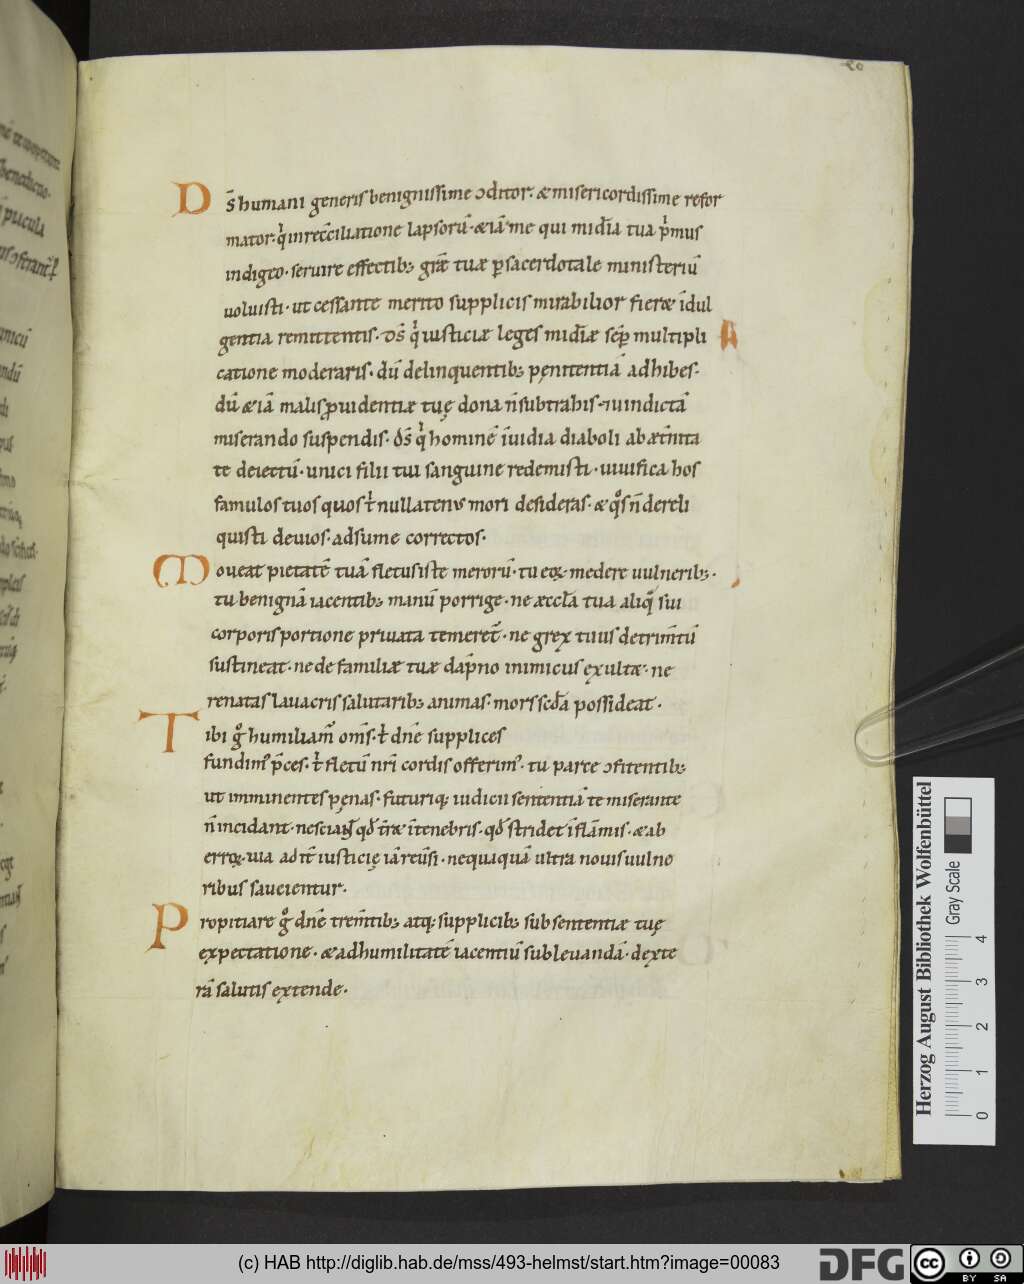 20
Ds̄ humani generis benignissime ↄditor· & misericordissime refor
mator· qͥ inrec̄ciliatione lapsorū· &iā me qui mid̄ia tua pͥmus
indigeo· seruire effectibꝫ grāe tuae ꝑ sacerdotale ministeriū
uoluisti· ut cessante merito supplicis mirabilior fieret īdul
gentia remittentis· Ds̄ qͥ iusticiae leges mid̄iae sēꝑ multipli A
catione moderaris· dū delinquentibꝫ pęnitentiā adhibes·
dū &iā malis ꝓuidentiae tuę dona n̄ subtrahis· ⁊ uindictā
miserando suspendis· Ds̄ qͥ hominē īuidia diaboli ab aet̄nita
te deiectū· unici filii tui sanguine redemisti· uiuifica hos
famulos tuos quos tͥ nullatenus mori desideras· & qͦs n̄ dereli
quisti deuios· adsume correctos·
Moueat pietatē tuā fletus iste merorū· tu eoꝝ medere uulneribꝫ·
tu benignā iacentibꝫ manū porrige· ne aeccła tua aliq̄ sui
corporis portione priuata temeret̄· ne grex tuus detrim̄tū
sustineat· ne de familiae tuae dāpno inimicus exultet· ne
renatas lauacris salutaribꝫ animas· mors scd̄a possideat·
Tibi gͦ humiliam᷒ om̄s· tͥ dn̄e supplices
fundim᷒ p̄ces· tͥ fletū nr̄i cordis offerim᷒· tu parce ↄfitentibꝫ
ut imminentes pęnas· futuriqꝫ iudicii sententiā te miserante
n̄ incidant· nesciant qd̄ tr̄ret ī tenebris· qd̄ stridet ī flāmis· & ab
erroꝝ uia ad it̄ iusticię iā reūsi· nequaquā ultra nouis uulne
ribus saucientur·
Propitiare gͦ dn̄e trem̄tibꝫ atqꝫ supplicibꝫ sub sententiae tuę
expectatione· & ad humilitatē iacentiū subleuandā· dexte
rā salutis extende·
Herzog August Bibliothek Wolfenbüttel
Gray Scale
0 1 2 3 4
(c) HAB http://diglib.hab.de/mss/493-helmst/start.htm?image=00083
DFG
cc BY SA